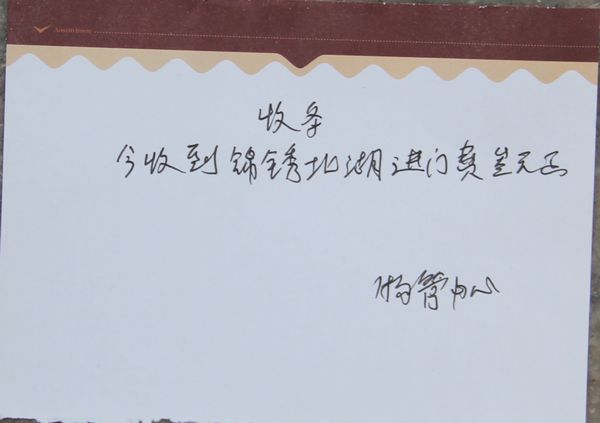 收条
今收到锦锈北湖进门费元正
物管中心